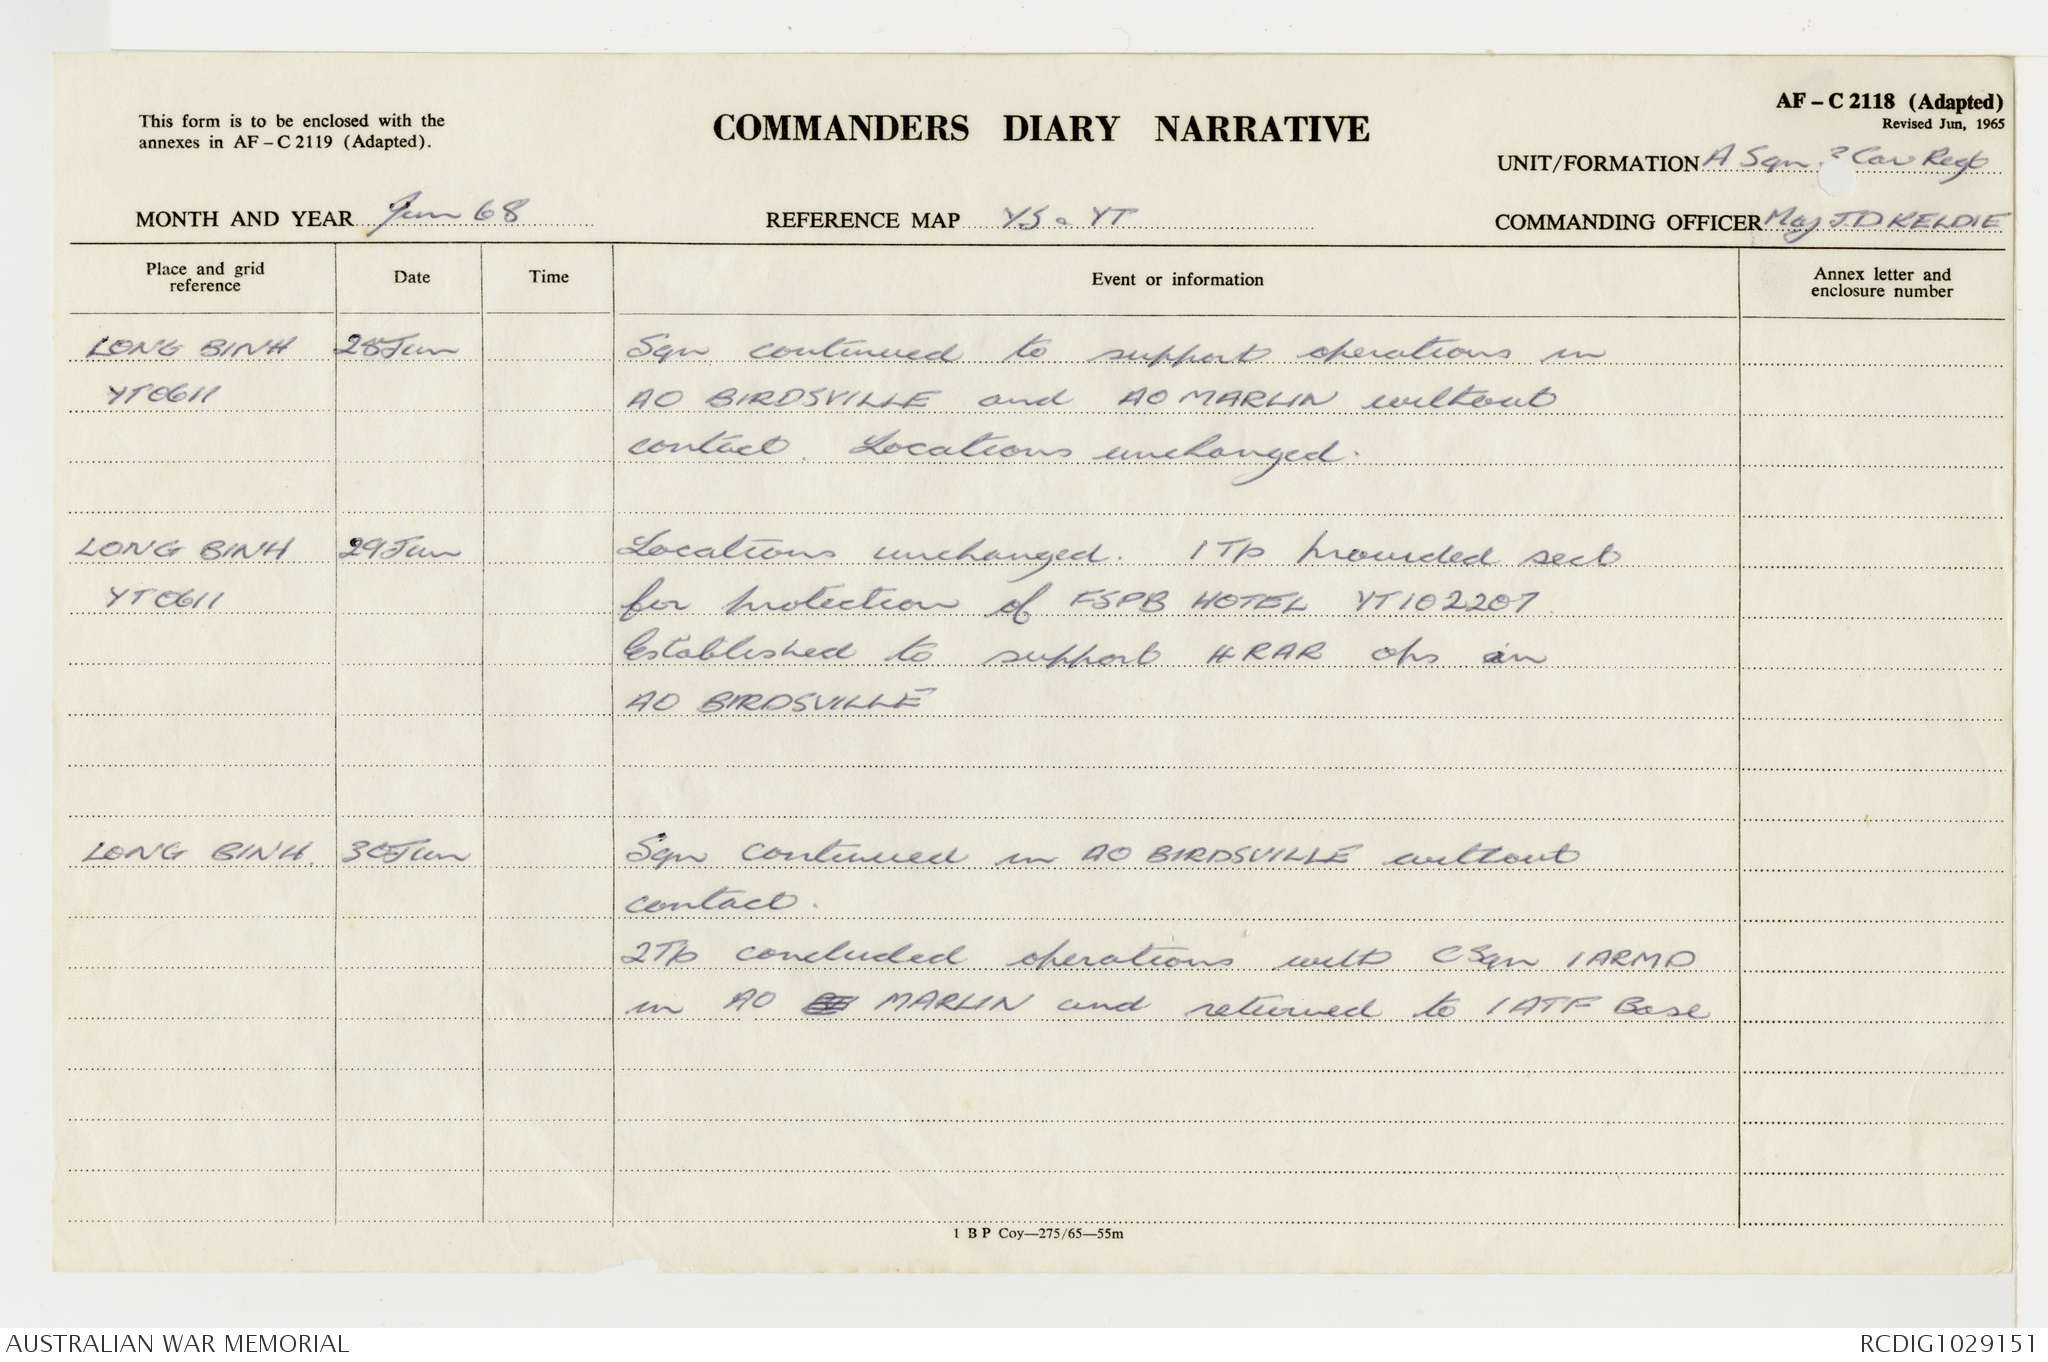 This form is to be enclosed with the
annexes in AF – C 2119 (Adapted).
COMMANDERS DIARY NARRATIVE
AF – C 2118 (Adapted)
Revised Jun, 1965
UNIT/FORMATION A Sqn. 3 Cav Regt
MONTH AND YEAR Jun 68
REFERENCE MAP YS & YT
COMMANDING OFFICER Maj J.D KELDIE
Place and grid reference Date Time Event or information Annex letter and enclosure number
LONG BINH 28 Jun Sqn continued to support operations in
YT0611 AO BIRDSVILLE and AO MARLIN without
contact. Locations unchanged.
LONG BINH 29 Jun Locations unchanged. 1 Tp provided sect
YT0611 for protection of FSPB HOTEL YT102207
Established to support 4 RAR ops in
AO BIRDSVILLE
LONG BINH. 30 Jun Sqn continued in AO BIRDSVILLE without
contact.
2Tp concluded operations with C Sqn 1 ARMD
in AO MARLIN and returned to 1 ATF Base
1 B P Coy—275/65—55m
AUSTRALIAN WAR MEMORIAL
RCDIG1029151